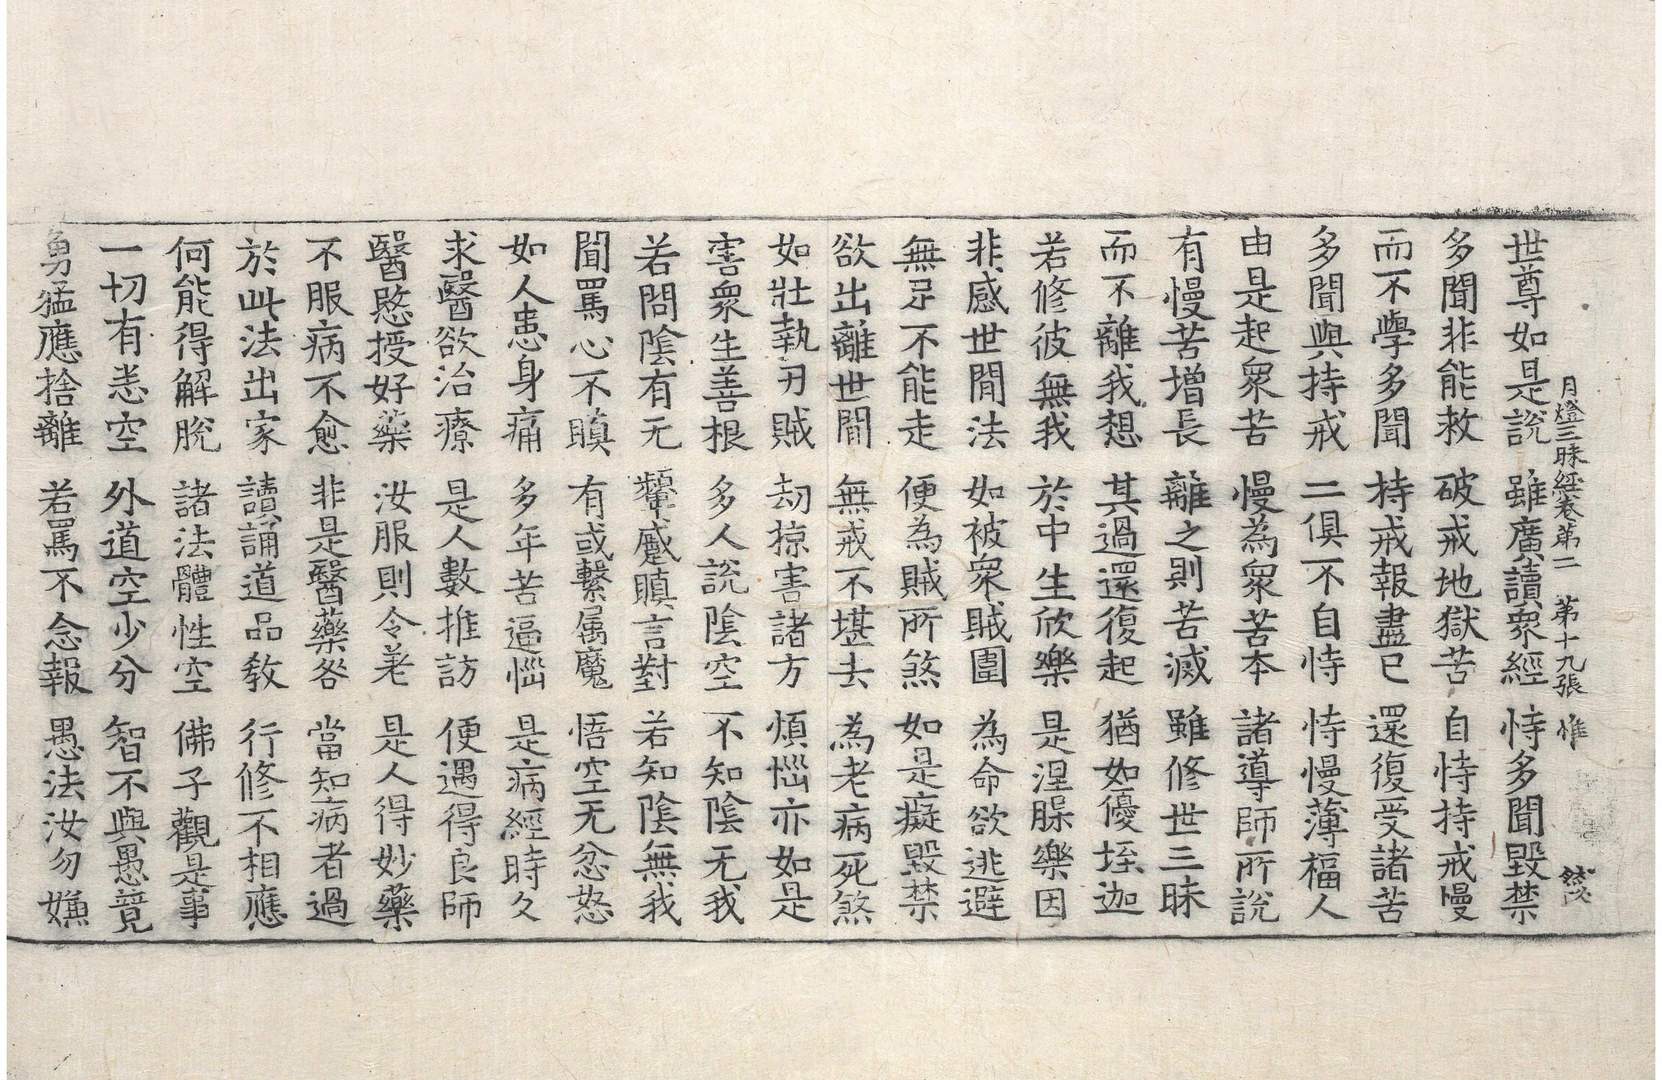 月燈三昧經卷第二 第十九張 惟
世尊如是說 雖廣讀衆經 恃多聞毀禁
多聞非能救 破戒地獄苦 自恃持戒慢
而不學多聞 持戒報盡已 還復受諸苦
多聞與持戒 二俱不自恃 恃慢薄福人
由是起衆苦 慢為衆苦本 諸導師所說
有慢苦增長 離之則苦滅 雖修世三昧
而不離我想 其過還復起 猶如優垤迦
若修彼無我 於中生欣樂 是涅槃樂因
非感世間法 如被衆賊圍 為命欲逃避
無足不能走 便為賊所煞 如是癡毀禁
欲出離世間 無戒不堪去 為老病死煞
如壯執刃賊 劫掠害諸方 煩惱亦如是
害衆生善根 多人說陰空 不知陰无我
若問陰有无 顰蹙瞋言對 若知陰無我
聞罵心不瞋 有或繫属魔 悟空无忿怒
如人患身痛 多年苦逼惱 是病經時久
求醫欲治療 是人數推訪 便遇得良師
醫愍授好藥 汝服則令差 是人得妙藥
不服病不愈 非是醫藥咎 當知病者過
於此法出家 讀誦道品教 行修不相應
何能得解脫 諸法體性空 佛子觀是事
一切有悉空 外道空少分 智不與愚競
勇猛應捨離 若罵不念報 愚法汝勿嫌